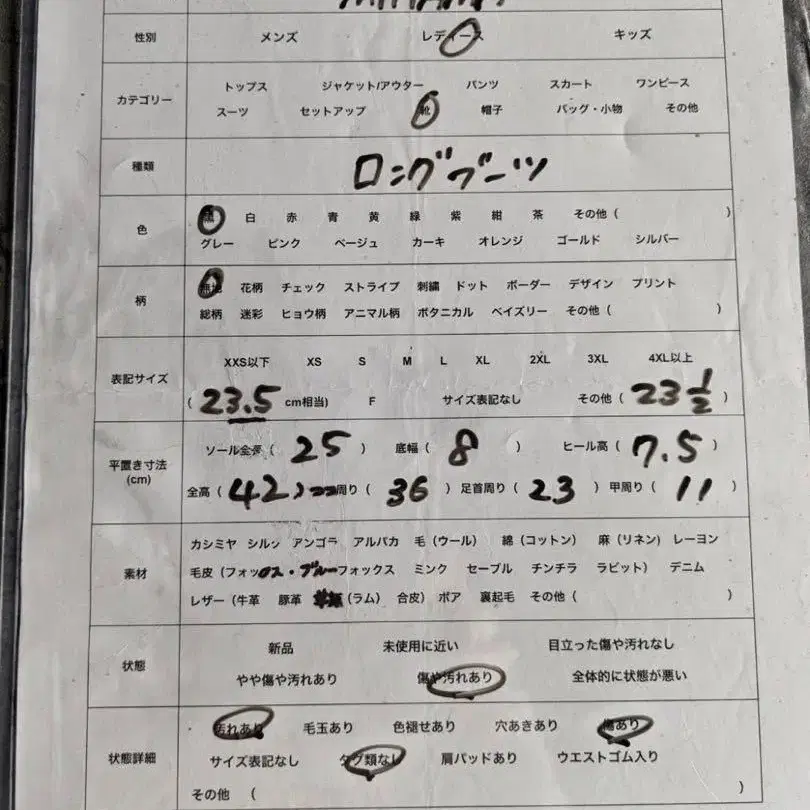 性別 メンズ レディース キッズ
カテゴリー トップス ジャケット/アウター パンツ スカート ワンピース
スーツ セットアップ 靴 帽子 バッグ・小物 その他
種類 ロングブーツ
色 黒 白 赤 青 黄 緑 紫 紺 茶 その他 ( )
グレー ピンク ベージュ カーキ オレンジ ゴールド シルバー
柄 無地 花柄 チェック ストライプ 刺繍 ドット ボーダー デザイン プリント
総柄 迷彩 ヒョウ柄 アニマル柄 ボタニカル ペイズリー その他 ( )
表記サイズ XXS以下 XS S M L XL 2XL 3XL 4XL以上
( 23.5 cm相当) F サイズ表記なし その他 ( 23 1/2 )
平置き寸法 (cm) ソール全長 ( 25 ) 底幅 ( 8 ) ヒール高 ( 7.5 )
全高 ( 42 ) 周り ( 36 ) 足首周り ( 23 ) 甲周り ( 11 )
素材 カシミヤ シルク アンゴラ アルパカ 毛 (ウール) 綿 (コットン) 麻 (リネン) レーヨン
毛皮 (フォックス・ブルーフォックス ミンク セーブル チンチラ ラビット) デニム
レザー (牛革 豚革 (ラム) 合皮) ボア 裏起毛 その他 ( )
状態 新品 未使用に近い 目立った傷や汚れなし
やや傷や汚れあり 傷や汚れあり 全体的に状態が悪い
状態詳細 汚れあり 毛玉あり 色褪せあり 穴あきあり 傷あり
サイズ表記なし タグ類なし 肩パッドあり ウエストゴム入り
その他 ( )